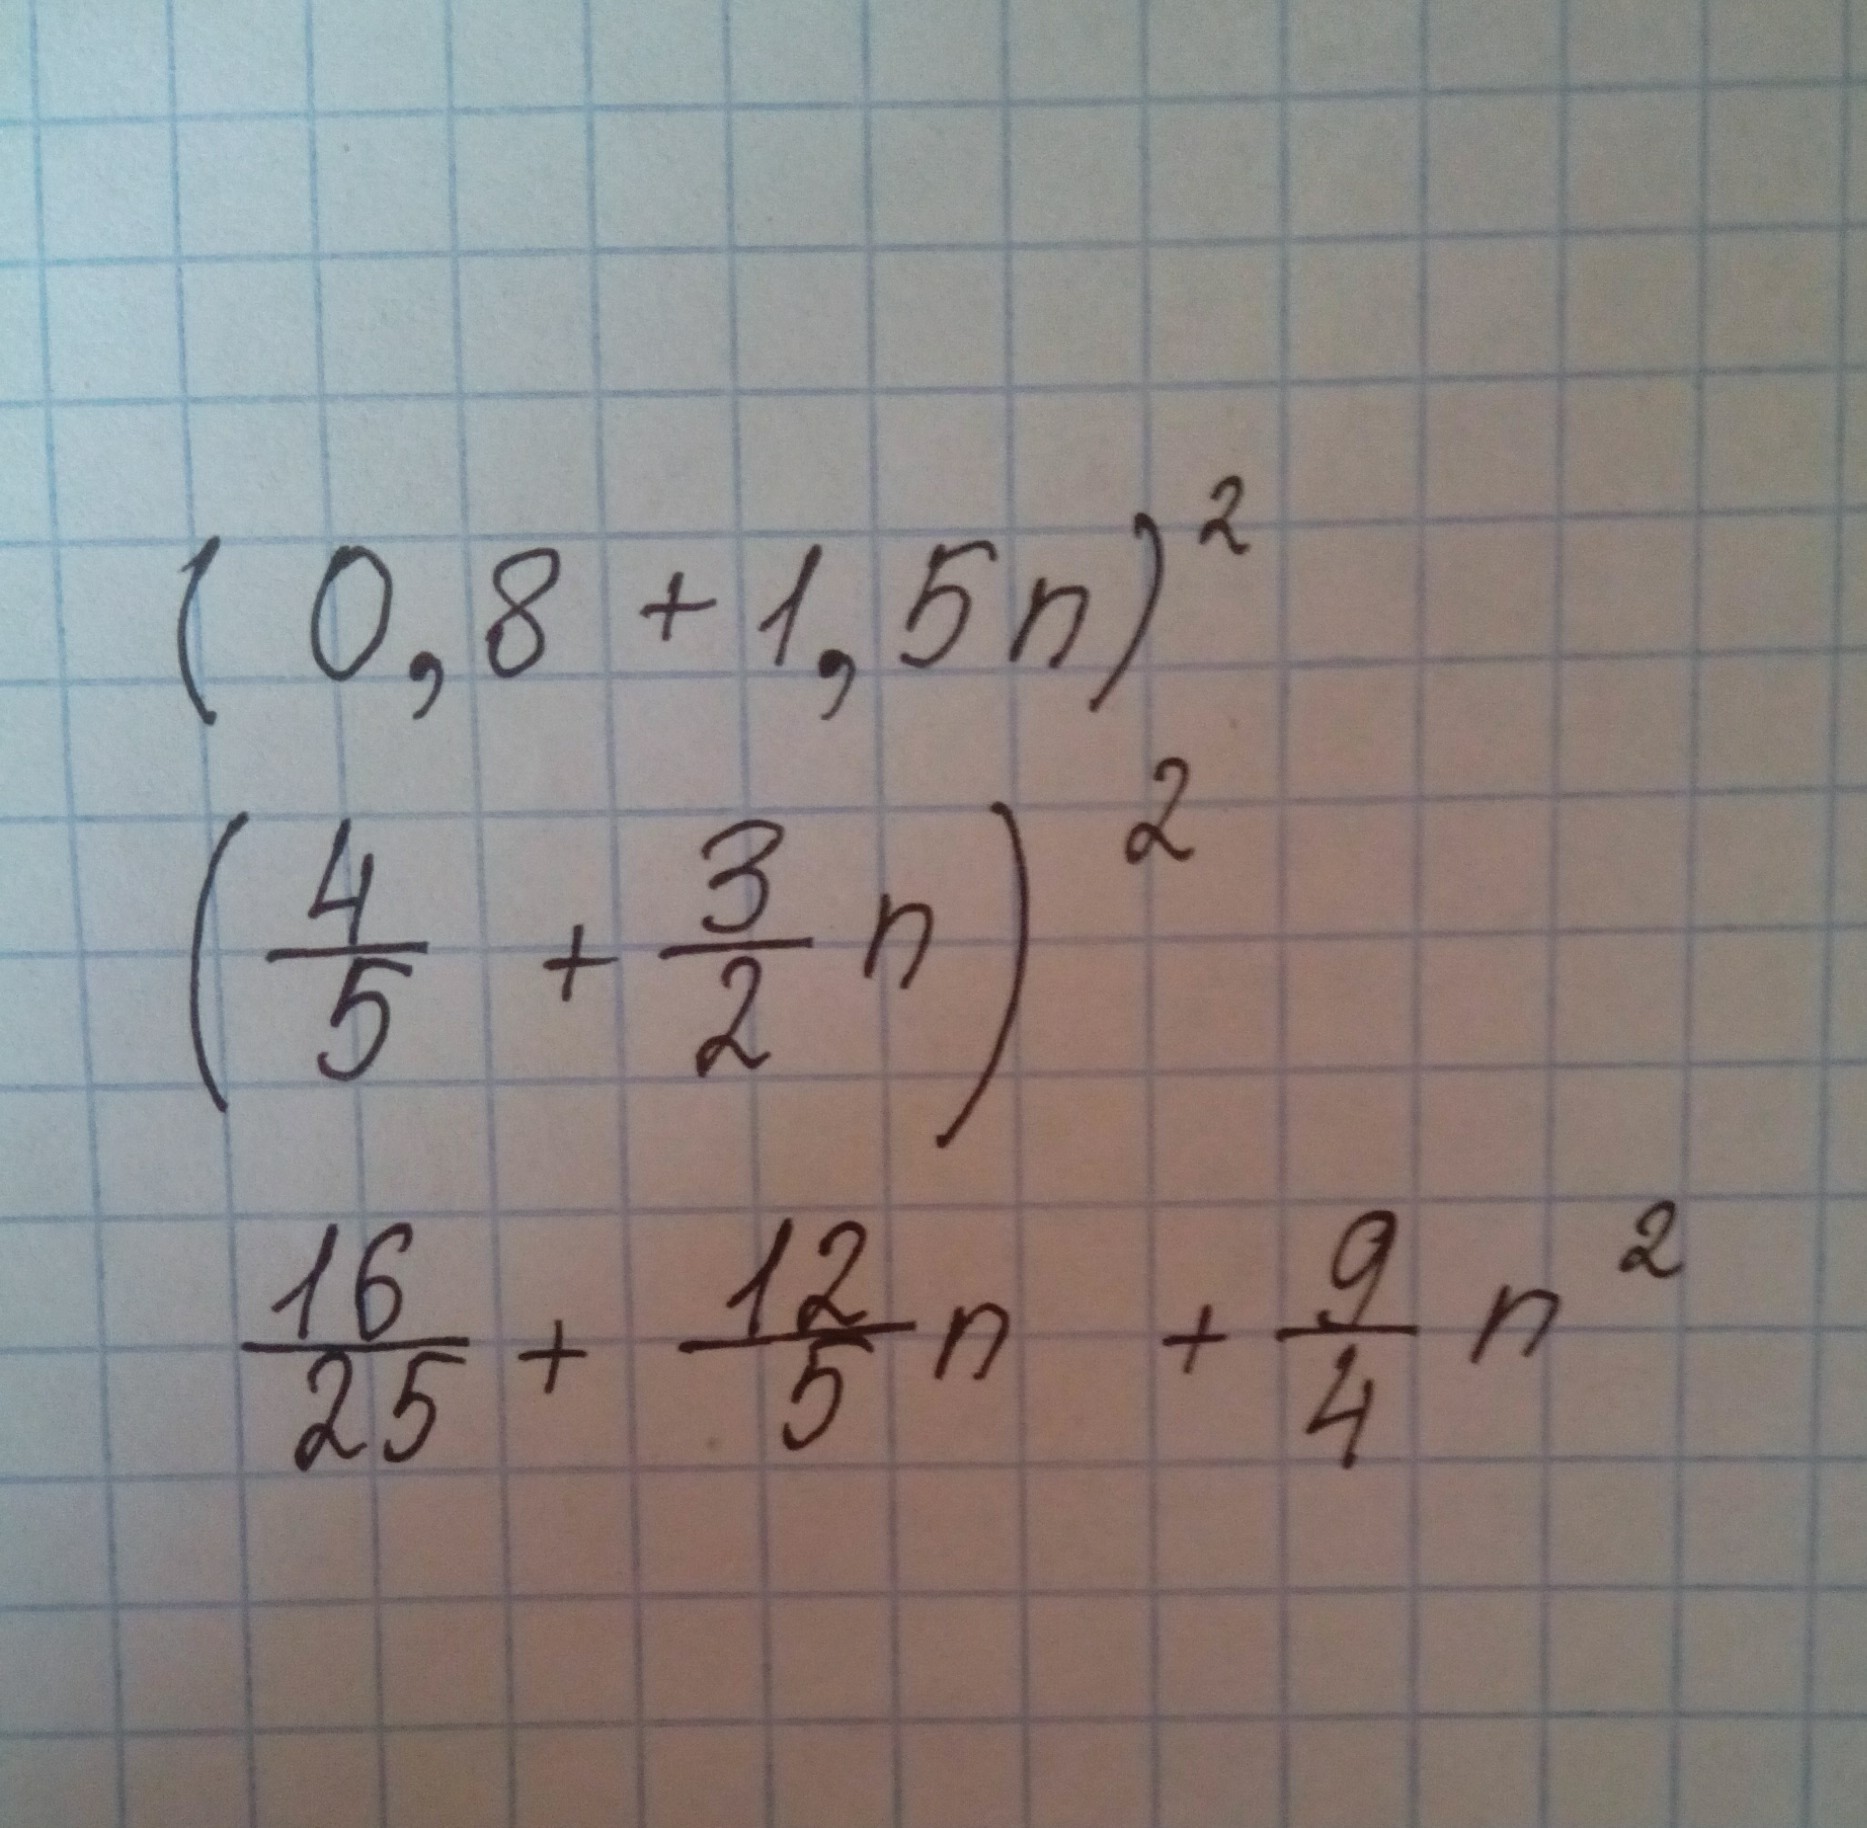 (0,8 + 1,5n)²
(4/5 + 3/2 n)²
16/25 + 12/5 n + 9/4 n²